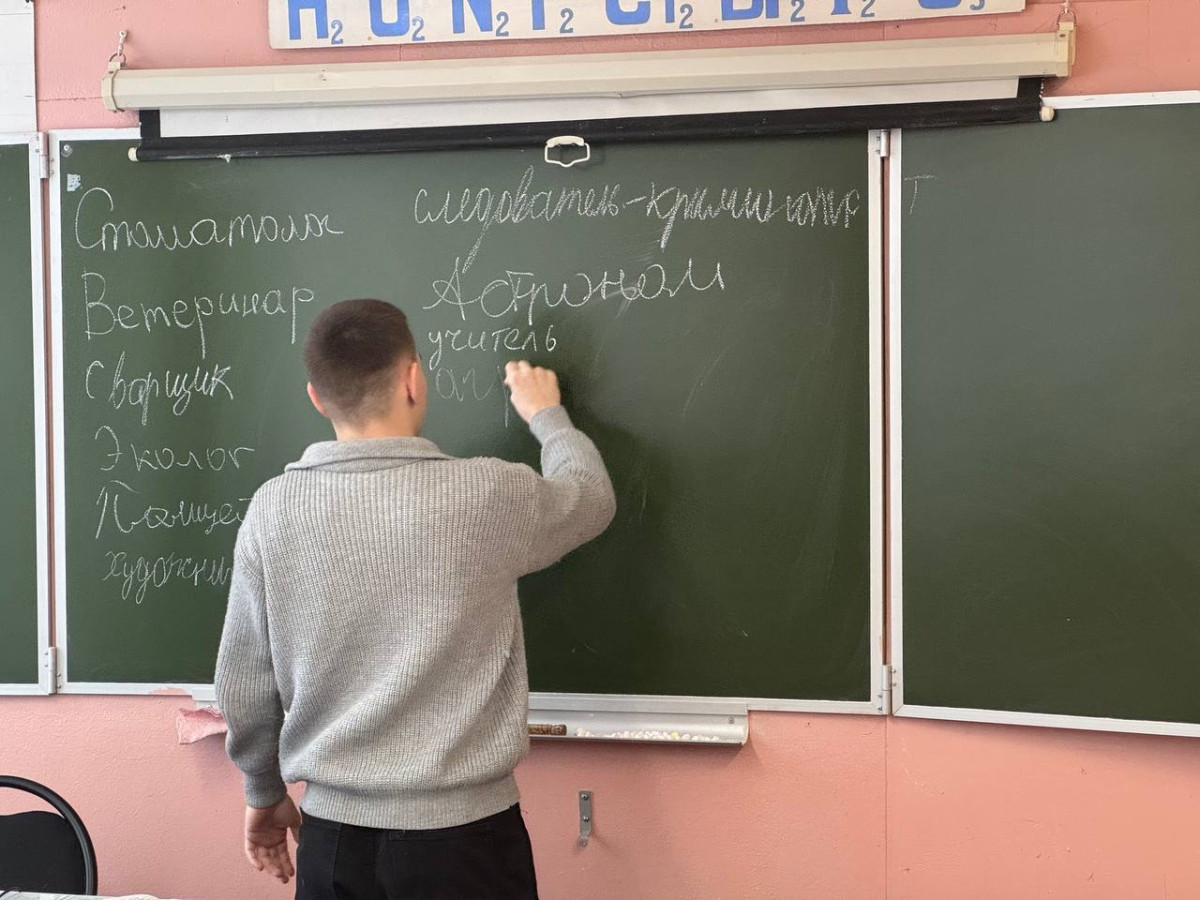 H₂ O₂ N₂ I₂ Cl₂ Br₂ F₂ O₃
Стоматолог
Ветеринар
Сварщик
Эколог
Полицей
художни
следователь-
Астроном
учитель
агр
Т